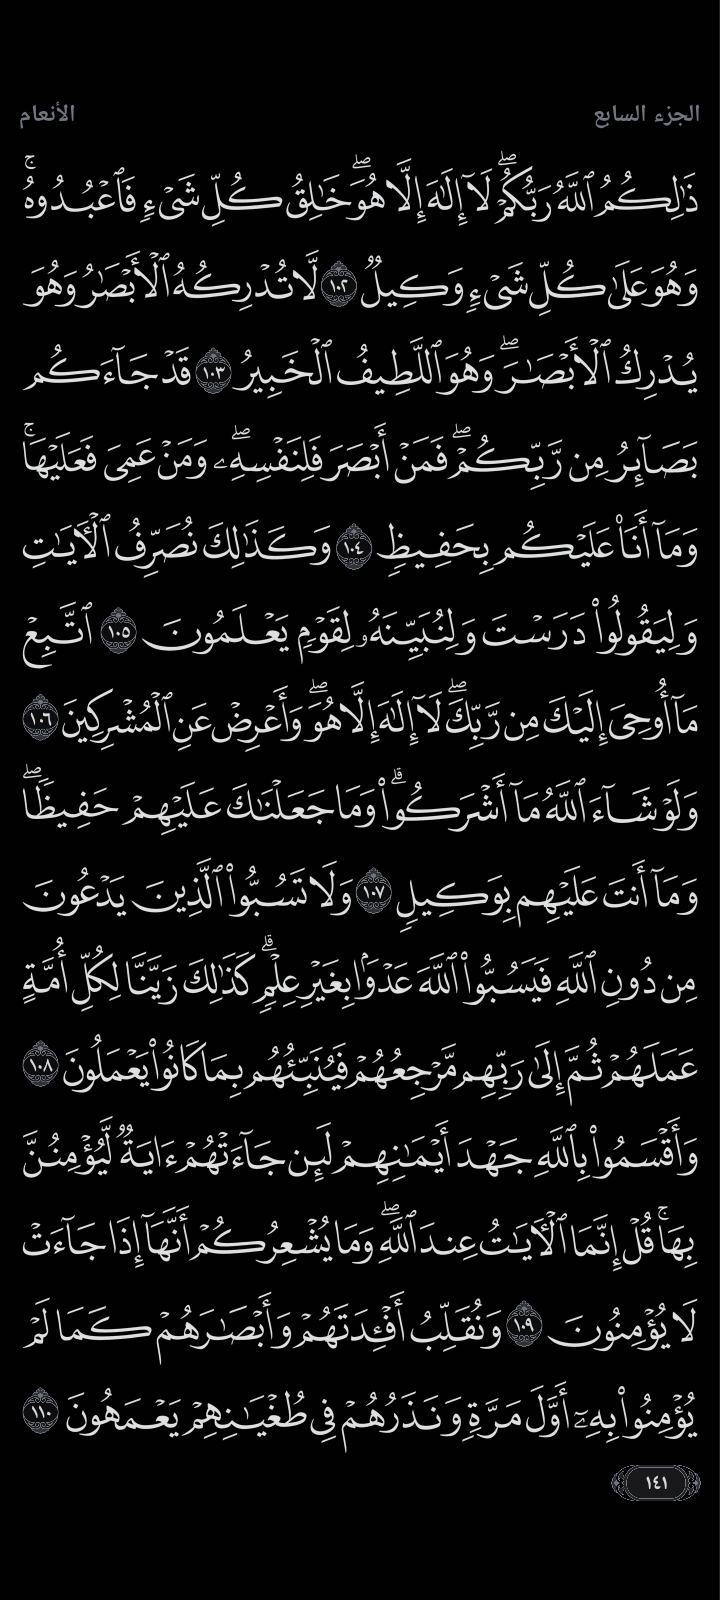 الجزء السابع
الأنعام
ذَٰلِكُمُ ٱللَّهُ رَبُّكُمۡۖ لَآ إِلَٰهَ إِلَّا هُوَۖ خَٰلِقُ كُلِّ شَيۡءٖ فَٱعۡبُدُوهُۚ
وَهُوَ عَلَىٰ كُلِّ شَيۡءٖ وَكِيلٞ ١٠٢ لَّا تُدۡرِكُهُ ٱلۡأَبۡصَٰرُ وَهُوَ
يُدۡرِكُ ٱلۡأَبۡصَٰرَۖ وَهُوَ ٱللَّطِيفُ ٱلۡخَبِيرُ ١٠٣ قَدۡ جَآءَكُم
بَصَآئِرُ مِن رَّبِّكُمۡۖ فَمَنۡ أَبۡصَرَ فَلِنَفۡسِهِۦۖ وَمَنۡ عَمِيَ فَعَلَيۡهَاۚ
وَمَآ أَنَا۠ عَلَيۡكُم بِحَفِيظٖ ١٠٤ وَكَذَٰلِكَ نُصَرِّفُ ٱلۡأٓيَٰتِ
وَلِيَقُولُواْ دَرَسۡتَ وَلِنُبَيِّنَهُۥ لِقَوۡمٖ يَعۡلَمُونَ ١٠٥ ٱتَّبِعۡ
مَآ أُوحِيَ إِلَيۡكَ مِن رَّبِّكَۖ لَآ إِلَٰهَ إِلَّا هُوَۖ وَأَعۡرِضۡ عَنِ ٱلۡمُشۡرِكِينَ ١٠٦
وَلَوۡ شَآءَ ٱللَّهُ مَآ أَشۡرَكُواْۗ وَمَا جَعَلۡنَٰكَ عَلَيۡهِمۡ حَفِيظٗاۖ
وَمَآ أَنتَ عَلَيۡهِم بِوَكِيلٖ ١٠٧ وَلَا تَسُبُّواْ ٱلَّذِينَ يَدۡعُونَ
مِن دُونِ ٱللَّهِ فَيَسُبُّواْ ٱللَّهَ عَدۡوَۢا بِغَيۡرِ عِلۡمٖۗ كَذَٰلِكَ زَيَّنَّا لِكُلِّ أُمَّةٍ
عَمَلَهُمۡ ثُمَّ إِلَىٰ رَبِّهِم مَّرۡجِعُهُمۡ فَيُنَبِّئُهُم بِمَا كَانُواْ يَعۡمَلُونَ ١٠٨
وَأَقۡسَمُواْ بِٱللَّهِ جَهۡدَ أَيۡمَٰنِهِمۡ لَئِن جَآءَتۡهُمۡ ءَايَةٞ لَّيُؤۡمِنُنَّ
بِهَاۚ قُلۡ إِنَّمَا ٱلۡأٓيَٰتُ عِندَ ٱللَّهِۖ وَمَا يُشۡعِرُكُمۡ أَنَّهَآ إِذَا جَآءَتۡ
لَا يُؤۡمِنُونَ ١٠٩ وَنُقَلِّبُ أَفۡـِٔدَتَهُمۡ وَأَبۡصَٰرَهُمۡ كَمَا لَمۡ
يُؤۡمِنُواْ بِهِۦٓ أَوَّلَ مَرَّةٖ وَنَذَرُهُمۡ فِي طُغۡيَٰنِهِمۡ يَعۡمَهُونَ ١١٠
١٤١